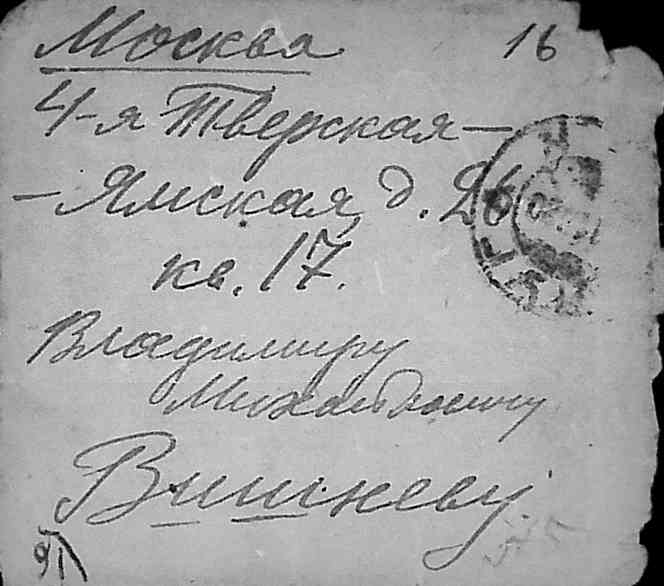 Москва 16
4-я Тверская-
-Ямская, д. 26
кв. 17.
Владимиру
Михайловичу
Вишневу